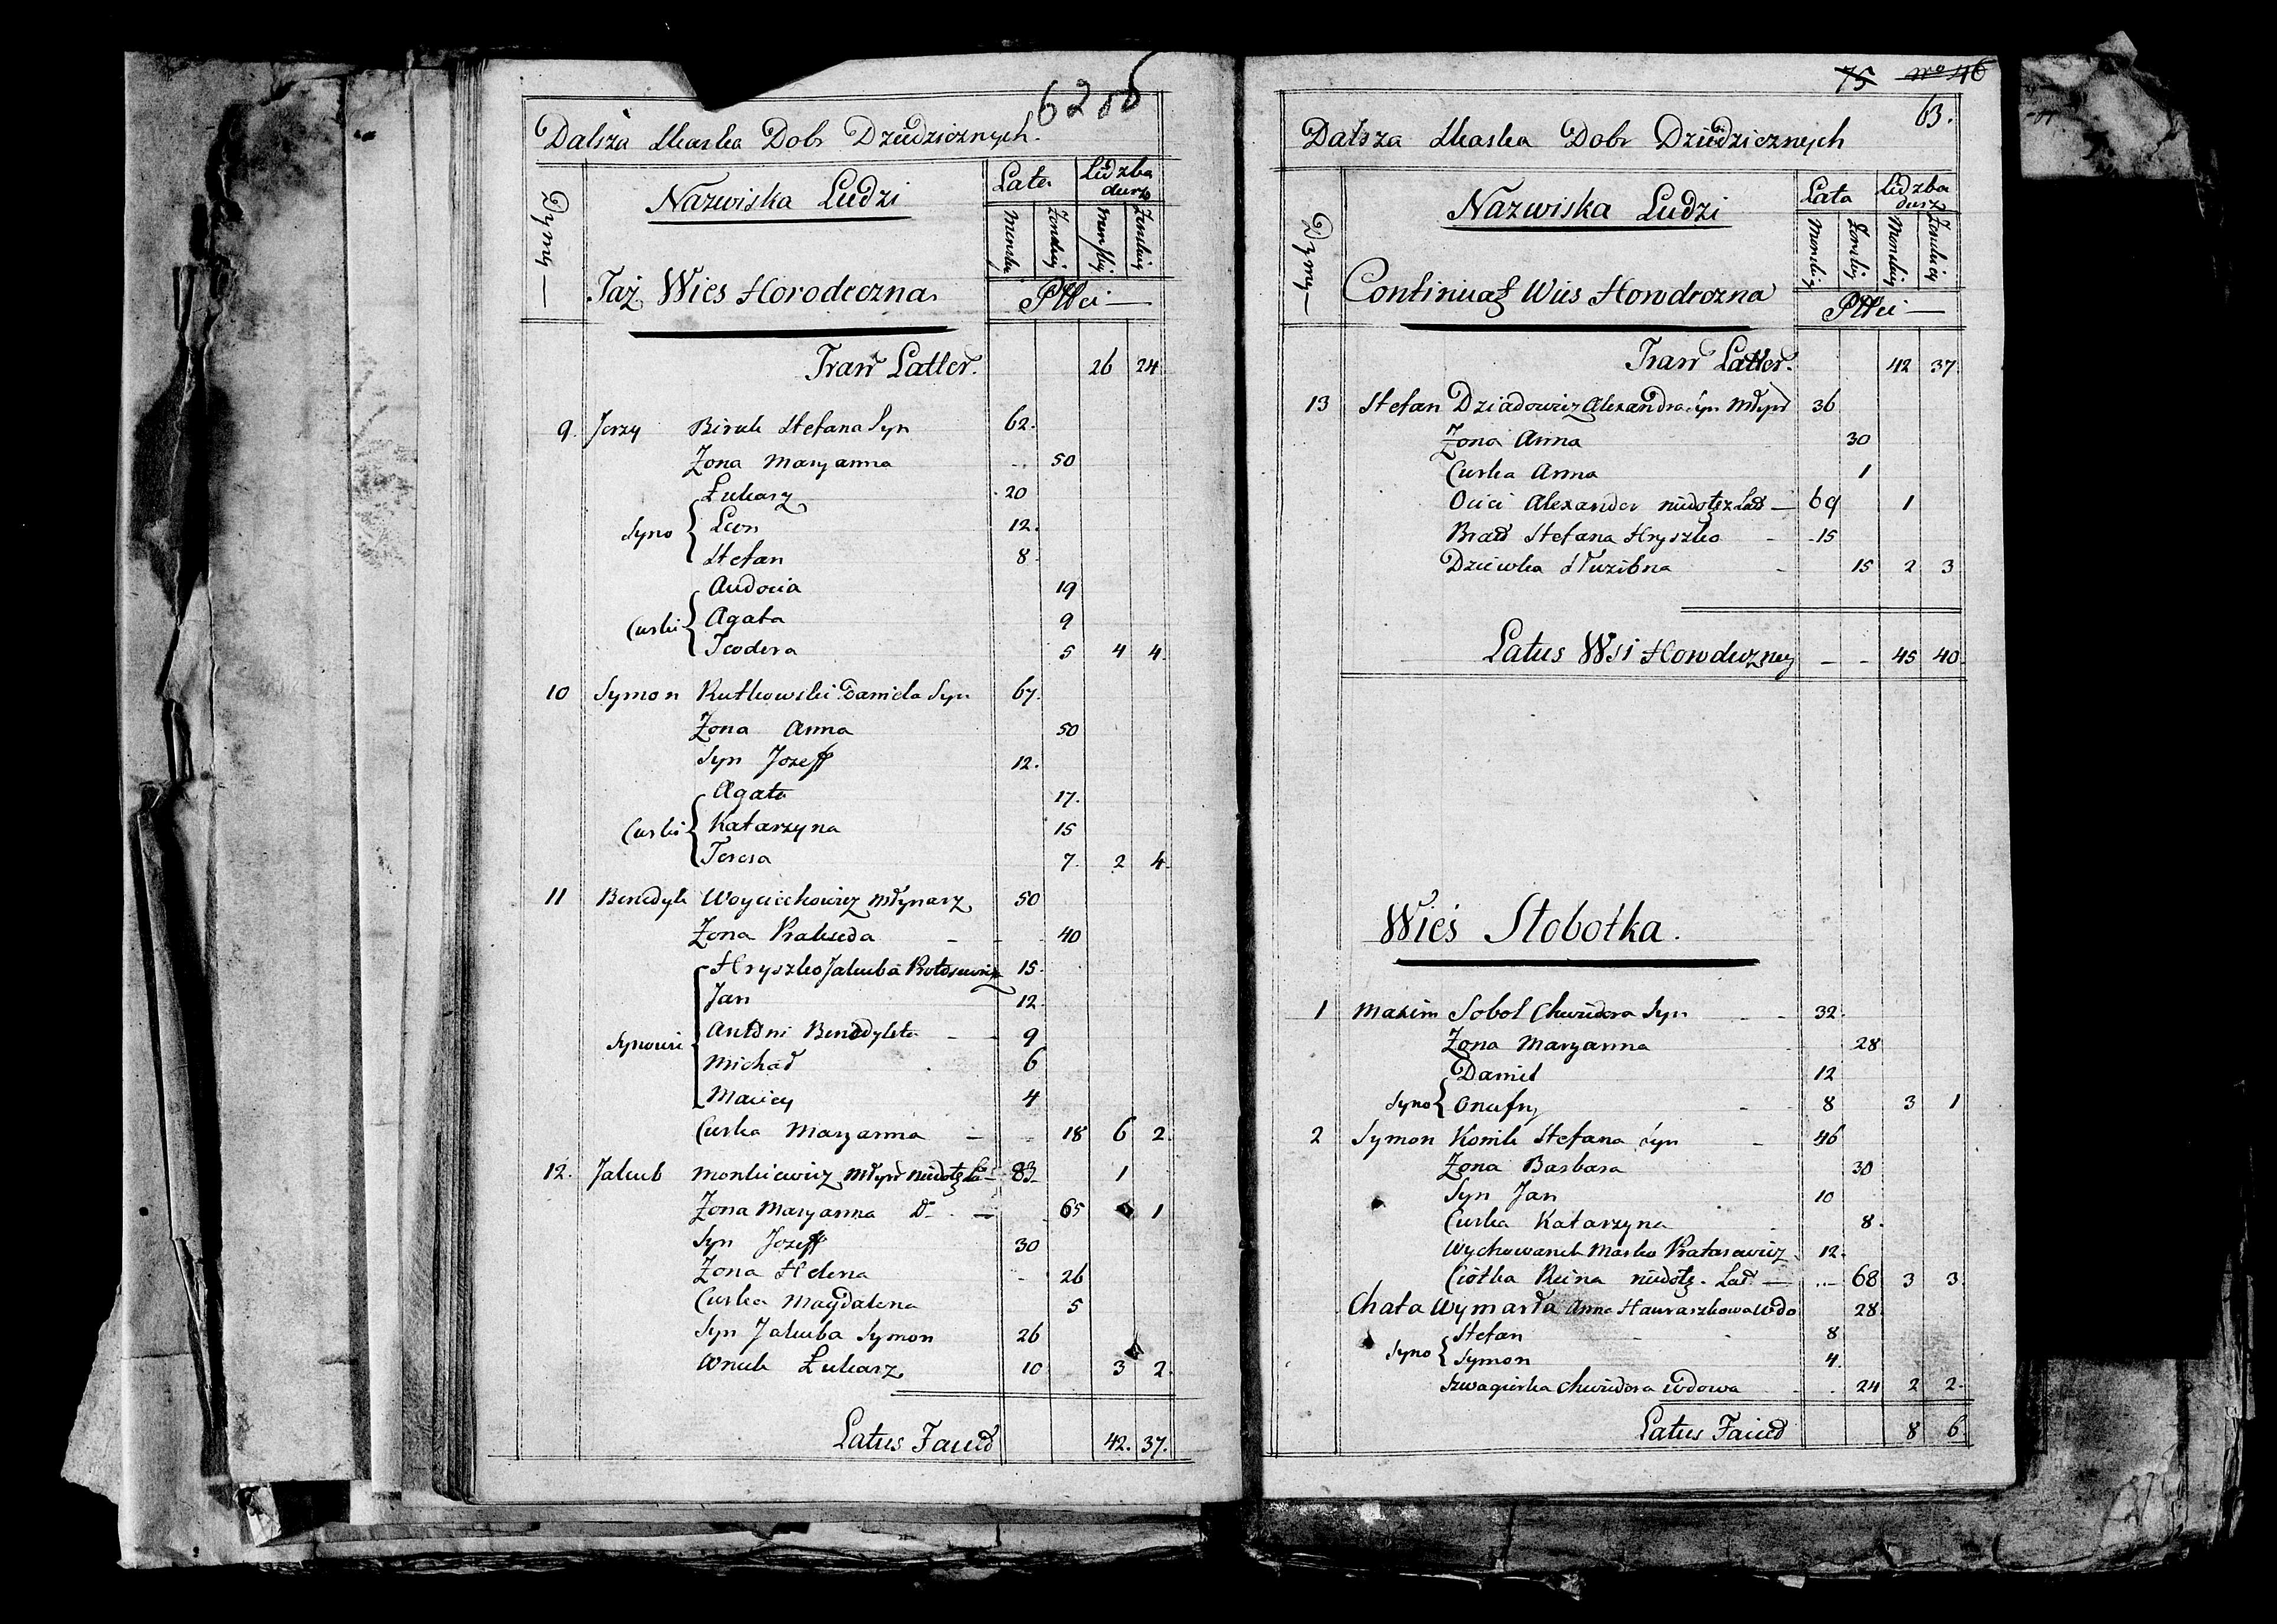 62 об
Dalsza Skaska Dobr Dziedzicznych.
Dymy
Nazwiska Ludzi
Lata
Liczba dusz
Menskiey
Żenskiey
Menskiey
Żenskiey
Taż Wies Horodeczna
Płci
Tran Latter. 26 24
9. Jerzy Biruk Stefana Syn 62.
Żona Maryanna 50
Syno
Łukasz 20
Leon 12.
Stefan 8
Curki
Audocia 19
Agata 9
Teodora 5 4 4.
10 Symon Rutkowski Daniela Syn 67.
Żona Anna 50
Syn Jozeff 12.
Curki
Agata 17.
Katarzyna 15
Teresa 7. 2 4.
11 Benedyk Woyciechowicz Młynarz 50
Żona Prakseda 40
Synowie
Hryszko Jakuba 15.
Jan 12.
Antoni Benedykta 9
Michał 6
Maciey 4
Curka Maryanna 18 6 2.
12. Jakub Monkiewicz Młyn niedołę 83 1
Żona Maryanna D 65 1
Syn Jozeff 30
Żona Helena 26
Curka Magdalena 5
Syn Jakuba Symon 26
Wnuk Łukasz 10 3 2.
Latus Facied 42. 37.
75 No 46
63.
Dalsza Skaska Dobr Dziedzicznych
Dymy
Nazwiska Ludzi
Lata
Liczba dusz
Menskiey
Żenskiey
Menskiey
Żenskiey
Continuat Wies Horodeczna
Płci
Tran Latter. 42 37
13 Stefan Dziadowicz Alexandra Syn Młyn 36
Żona Anna 30
Curka Anna 1
Ociec Alexander niedołęz Lat 69 1
Brat Stefana Hryszko 15
Dziewka Słuzebna 15 2 3
Latus Wsi Horodeczney 45 40.
Wieś Stobołka.
1 Maxim Sobol Chwiedora Syn 32.
Żona Maryanna 28
Syno
Daniel 12
Onufry 8 3 1
2 Symon Konik Stefana Syn 46
Żona Barbara 30
Syn Jan 10
Curka Katarzyna 8.
Wychowanek Marko Pratasewicz 12.
Ciotka niedołę. Lat 68 3 3
Chata Wymarła Anna Hauraszkowa Wdo 28
Syno
Stefan 8
Symon 4.
Szwagierka Chwiedora Wdowa 24 2 2.
Latus Facied 8 6.